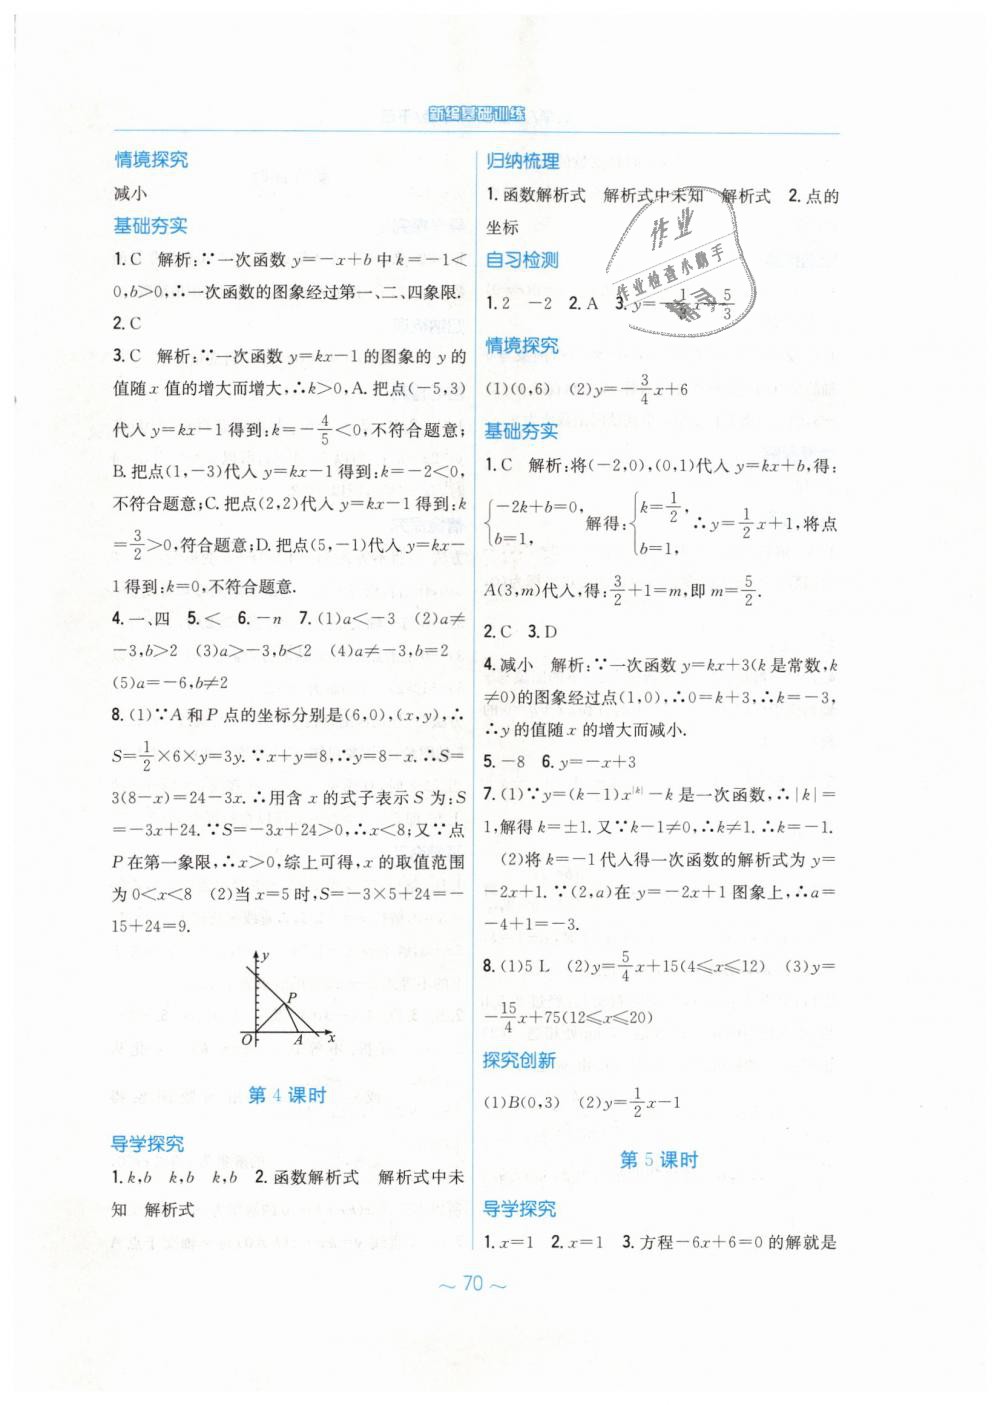 新编基础训练
情境探究
减小
基础夯实
1. C 解析:∵一次函数 y=-x+b 中 k=-1<
0,b>0,∴一次函数的图象经过第一、二、四象限.
2. C
3. C 解析:∵一次函数 y=kx-1 的图象的 y 的
值随 x 值的增大而增大,∴k>0,A. 把点(-5,3)
代入 y=kx-1 得到:k=-4/5<0,不符合题意;
B. 把点(1,-3)代入 y=kx-1 得到:k=-2<0,
不符合题意;C. 把点(2,2)代入 y=kx-1 得到:k
=3/2>0,符合题意;D. 把点(5,-1)代入 y=kx-
1 得到:k=0,不符合题意.
4. 一、四 5. < 6. -n 7. (1)a<-3 (2)a≠
-3,b>2 (3)a>-3,b<2 (4)a≠-3,b=2
(5)a=-6,b≠2
8. (1)∵A 和 P 点的坐标分别是(6,0),(x,y),∴
S=1/2×6×y=3y. ∵x+y=8,∴y=8-x. ∴S=
3(8-x)=24-3x. ∴用含 x 的式子表示 S 为:S
=-3x+24. ∵S=-3x+24>0,∴x<8;又∵点
P 在第一象限,∴x>0,综上可得,x 的取值范围
为 0<x<8 (2)当 x=5 时,S=-3×5+24=-
15+24=9.
y
P
O A x
第 4 课时
导学探究
1. k,b k,b k,b 2. 函数解析式 解析式中未
知 解析式
归纳梳理
1. 函数解析式 解析式中未知 解析式 2. 点的
坐标
自习检测
1. 2 -2 2. A 3. y=-1/3x+5/3
作业
作业检查小助手
情境探究
(1)(0,6) (2)y=-3/4x+6
基础夯实
1. C 解析:将(-2,0),(0,1)代入 y=kx+b,得:
{-2k+b=0, b=1, 解得:{k=1/2, b=1, ∴y=1/2x+1,将点
A(3,m)代入,得:3/2+1=m,即 m=5/2.
2. C 3. D
4. 减小 解析:∵一次函数 y=kx+3(k 是常数,k
≠0)的图象经过点(1,0),∴0=k+3,∴k=-3,
∴y 的值随 x 的增大而减小.
5. -8 6. y=-x+3
7. (1)∵y=(k-1)x^|k|-k 是一次函数,∴|k|=
1,解得 k=±1. 又∵k-1≠0,∴k≠1. ∴k=-1.
(2)将 k=-1 代入得一次函数的解析式为 y=
-2x+1. ∵(2,a)在 y=-2x+1 图象上,∴a=
-4+1=-3.
8. (1)5 L (2)y=5/4x+15(4≤x≤12) (3)y=
-15/4x+75(12≤x≤20)
探究创新
(1)B(0,3) (2)y=1/2x-1
第 5 课时
导学探究
1. x=1 2. x=1 3. 方程-6x+6=0 的解就是
~ 70 ~